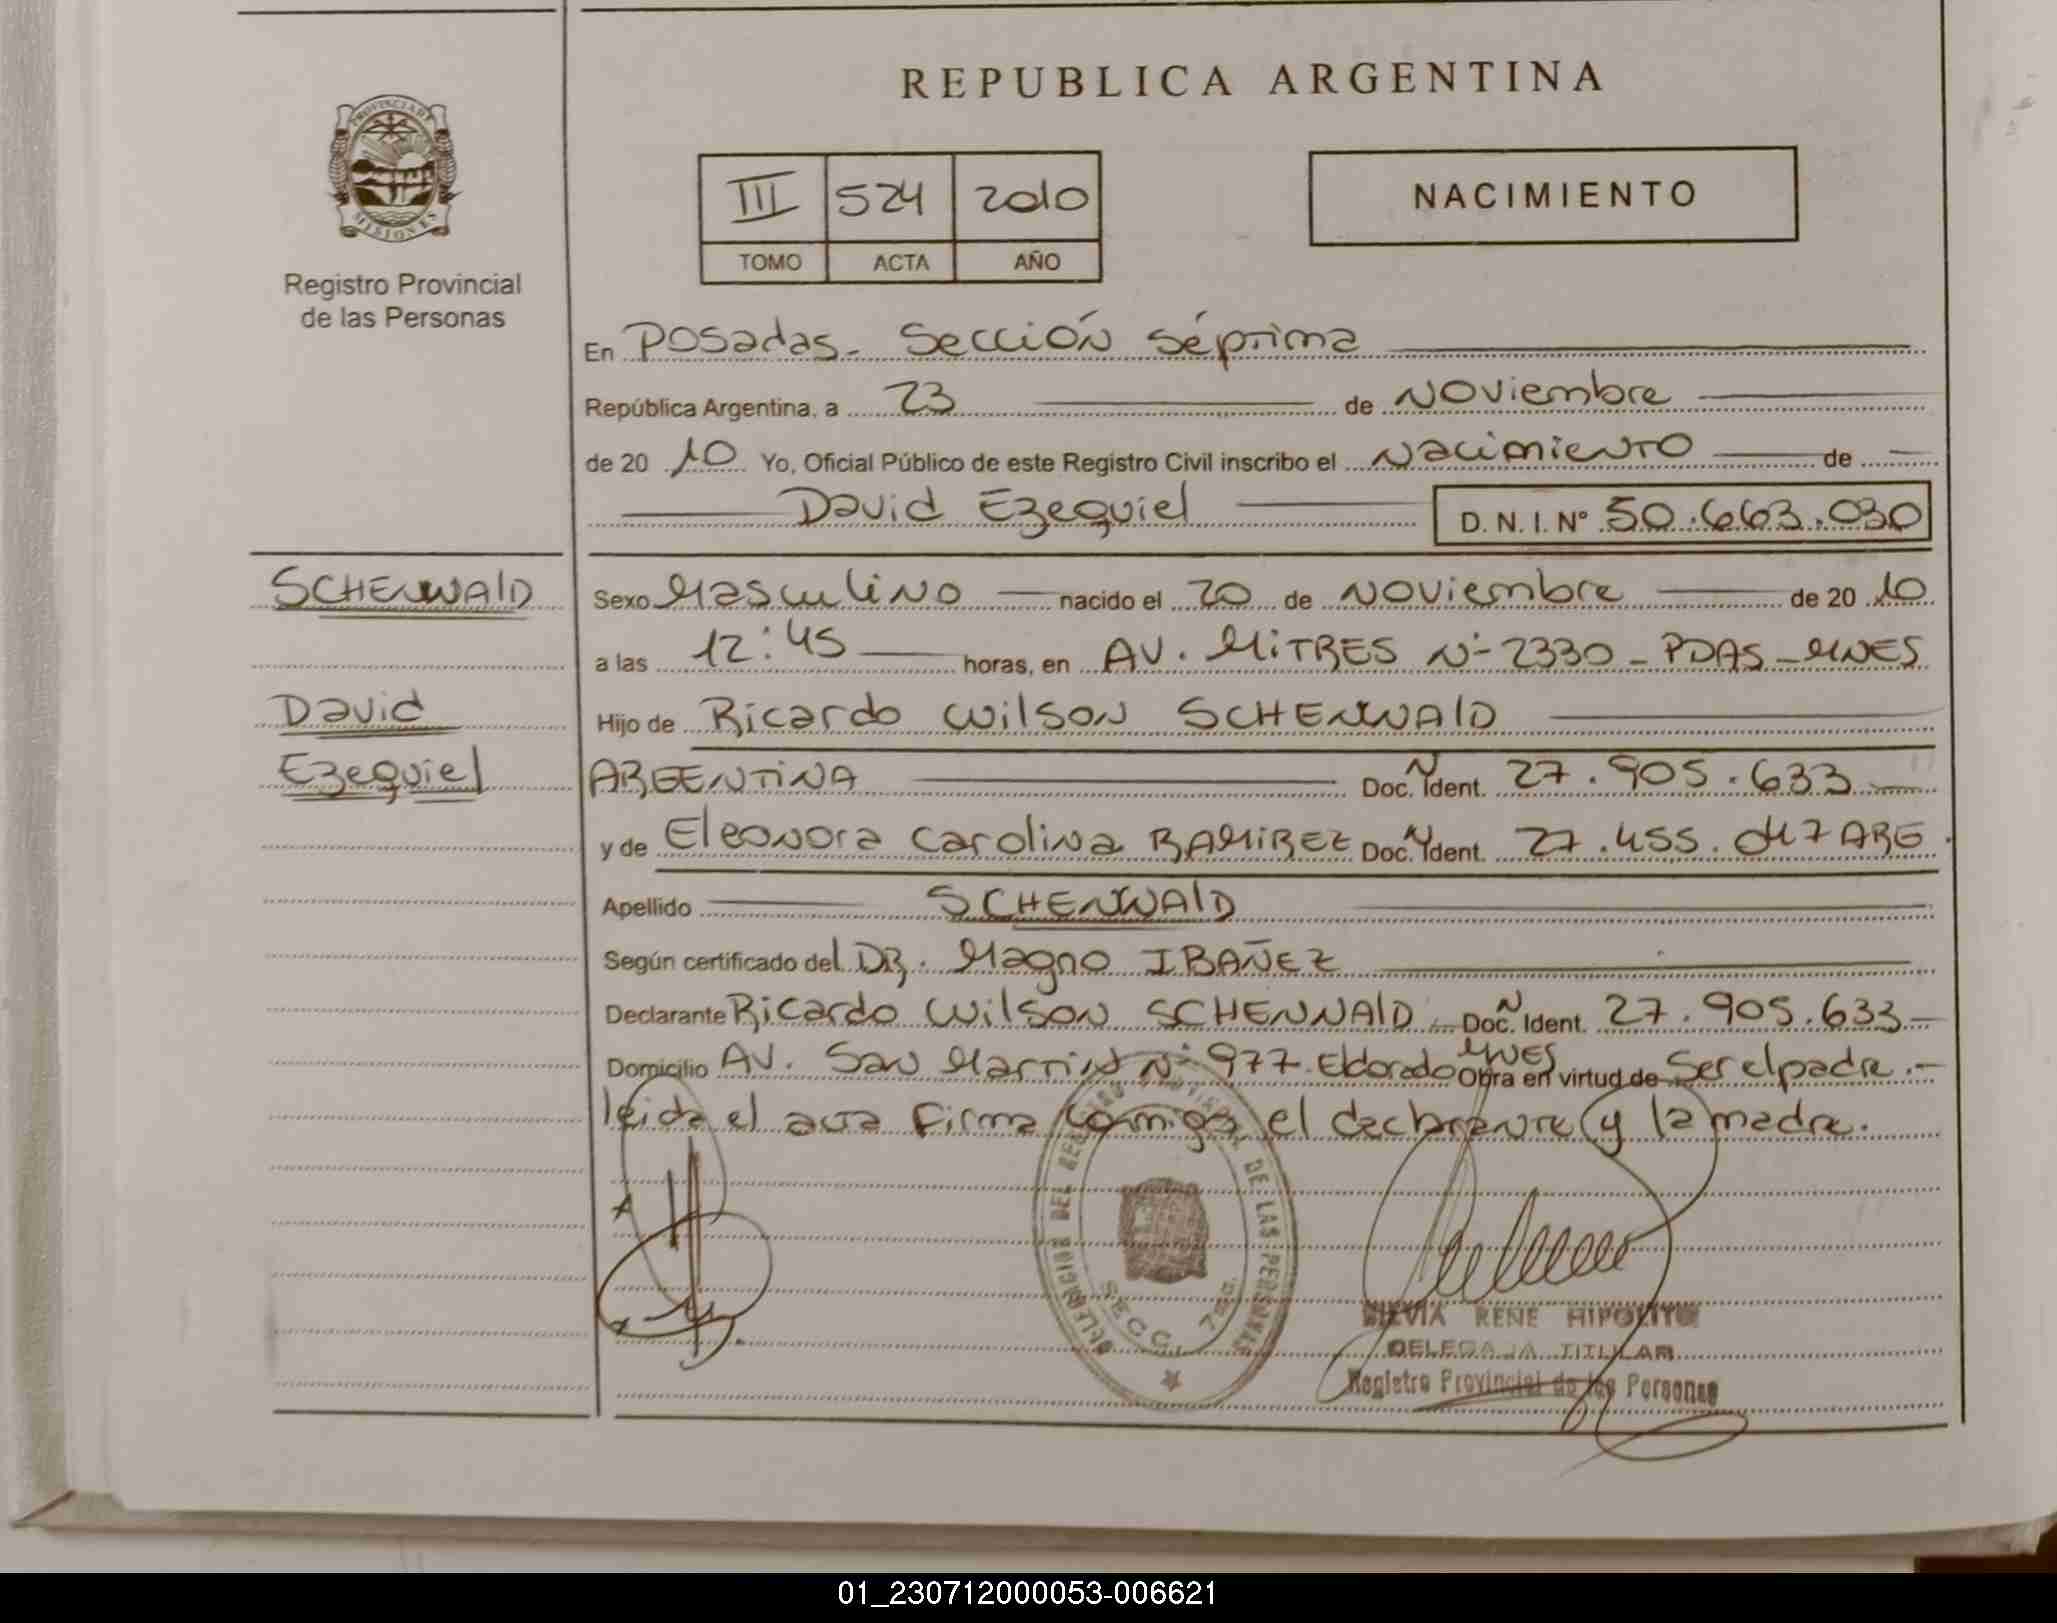 REPUBLICA ARGENTINA
PROVINCIA DE
MISIONES
Registro Provincial
de las Personas
III 524 2010
TOMO ACTA AÑO
NACIMIENTO
En Posadas - Sección Séptima
República Argentina, a 23 de Noviembre
de 20 10 Yo, Oficial Público de este Registro Civil inscribo el Nacimiento de
David Ezequiel D. N. I. Nº 50.663.030
SCHENWALD
David
Ezequiel
Sexo Masculino nacido el 20 de Noviembre de 20 10
a las 12:45 horas, en AV. MITRES Nº 2330 - PDAS - MNES
Hijo de Ricardo Wilson SCHENWALD
ARGENTINA Doc. N Ident. 27.905.633
y de Eleonora Carolina RAMIREZ Doc. N Ident. 27.455. ARG
Apellido SCHENWALD
Según certificado del DR. Magno IBAÑEZ
Declarante Ricardo Wilson SCHENNALD Doc. N Ident. 27.905.633
Domicilio AV. San Martin Nº 977 Eldorado MNES Obra en virtud de Ser el padre.-
leida el acta Firma conmigo el declarante y la madre.
DE LAS PERSONAS
SECC. 7ma.
SILVIA RENE HIPOLITO
DELEGADA TITULAR
Registro Provincial de las Personas
01_230712000053-006621